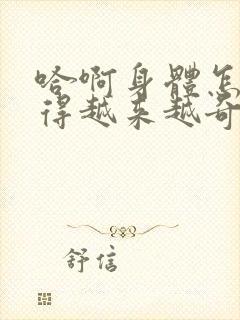 哈啊身體怎
得越来越奇
舒信